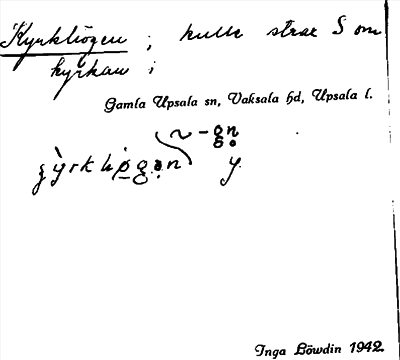 Kyrkhögen ; kulle strax S om
kyrkan ;
Gamla Upsala sn, Vaksala hd, Upsala l.
Inga Löwdin 1942.